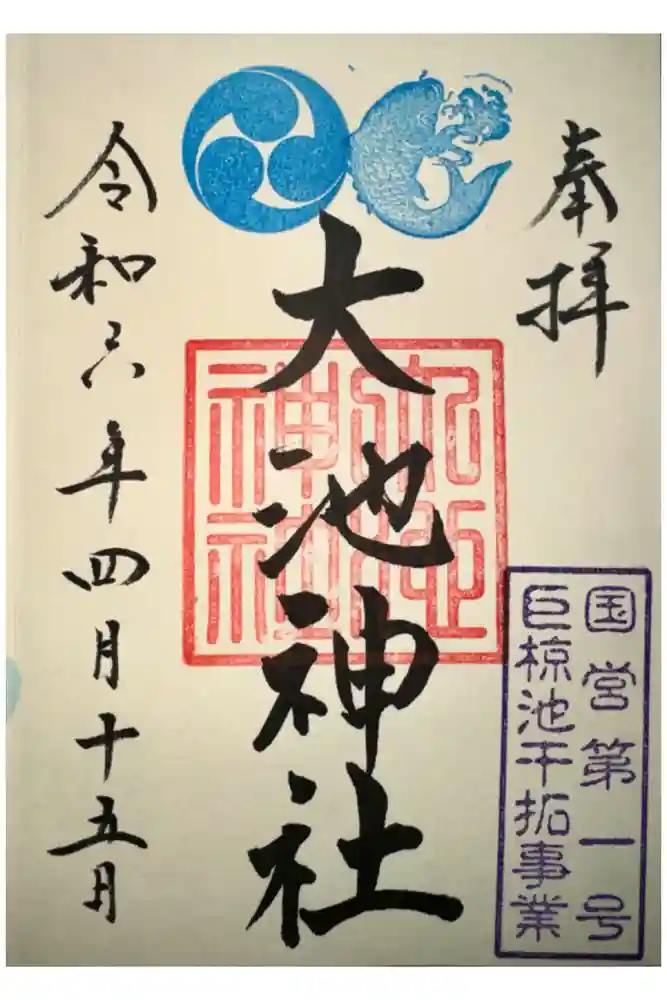 奉拝
国営第一号
巨椋池干拓事業
大池神社
大池
神社
令和六年四月十五日